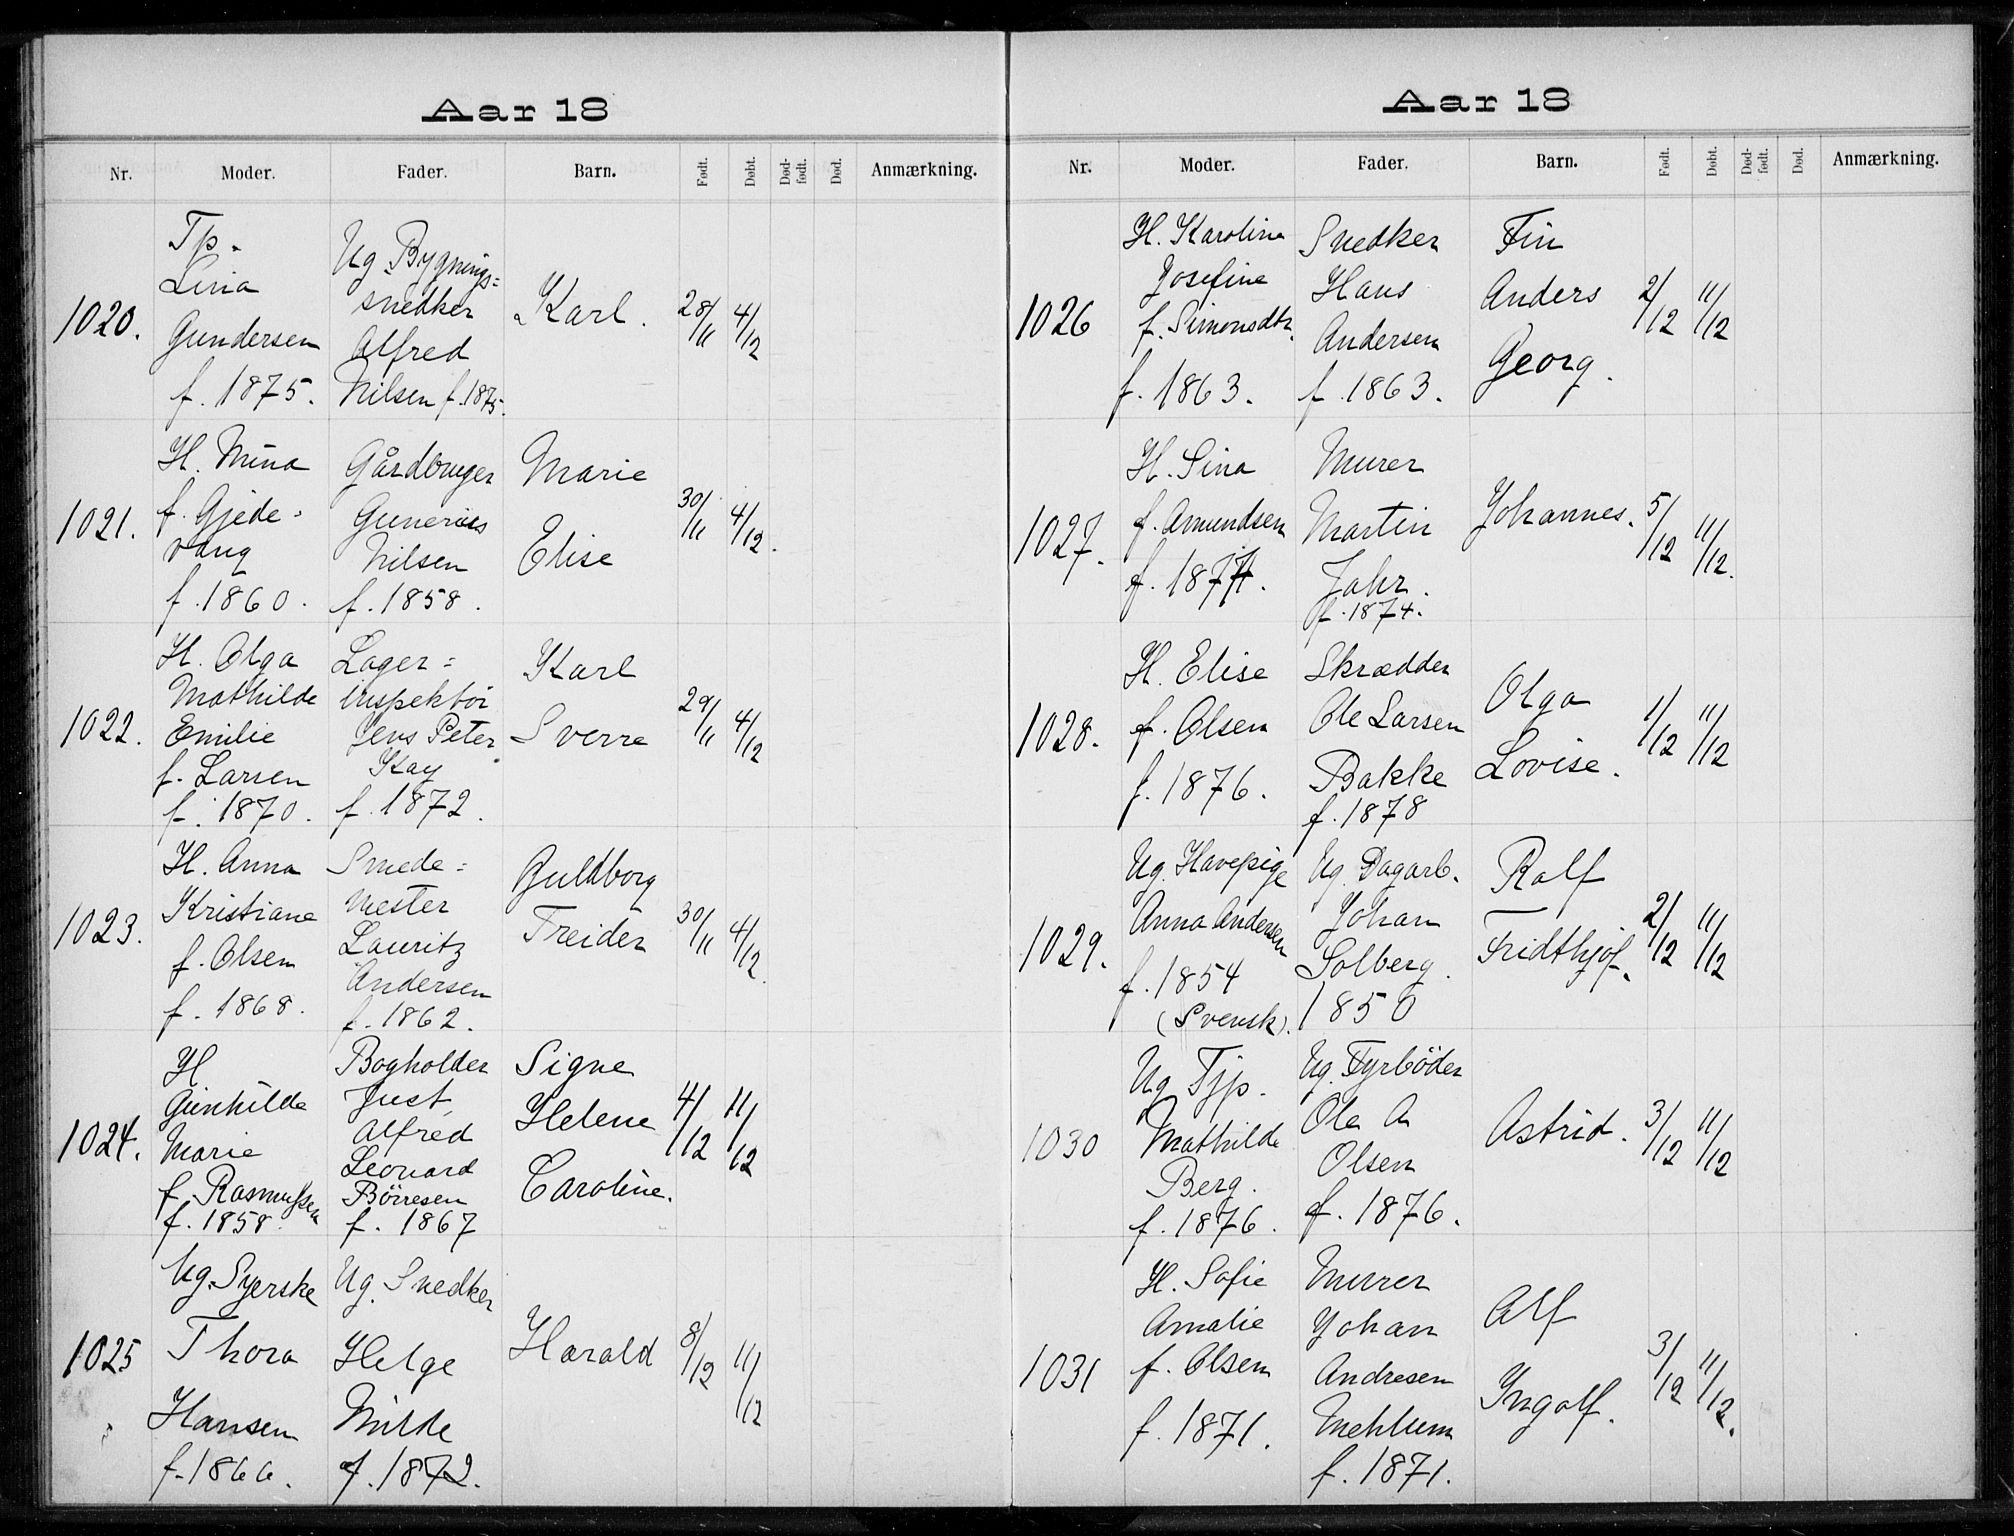 Aar 18
Nr. Moder. Fader. Barn. Født. Døbt. Død-født. Død. Anmærkning.
1020.
Tp.
Lina
Gundersen
f. 1875.
Ug. Bygnings=
snedker
Alfred
Nilsen f. 1875.
Karl.
28/11 4/12
1021.
H. Mina
f. Gjede=
vang
f. 1860.
Gårdbruger
Gunerius
Nilsen
f. 1858.
Marie
Elise
30/11 4/12.
1022.
H. Olga
Mathilde
Emilie
f. Larsen
f. 1870.
Lager=
inspektör
Jens Peter
Kay
f. 1872.
Karl
Sverre
29/11 4/12
1023.
H. Anna
Kristiane
f. Olsen
f. 1868.
Smede=
mester
Lauritz
Andersen
f. 1862.
Guldborg
Treider
30/11 4/12.
1024.
H
Gunhilda
Marie
f. Rasmussen
f. 1858.
Bogholder
Just
Alfred
Leonard
Börresen
f. 1867
Signe
Helene
Caroline.
4/12 11/12
1025
Ug. Syerske
Thora
Hansen
f. 1866.
Ug. Snedker
Helge
Milde
f. 1872.
Harald
8/12 11/12
Aar 18
Nr. Moder. Fader. Barn. Født. Døbt. Død-født. Død. Anmærkning.
1026
H. Karoline
Josefine
f. Simonsdtr.
f. 1863.
Snedker
Hans
Andersen
f. 1863.
Fin
Anders
Georg.
2/12 11/12
1027.
H. Sina
f. Amundsen
f. 1874.
Murer
Martin
Jahr.
f. 1874.
Johannes.
5/12 11/12.
1028.
H. Elise
f. Olsen
f. 1876.
Skrædder
Ole Larsen
Bakke
f. 1878
Olga
Lovise.
1/12 11/12
1029.
Ug. Havepige
Anna Andersen
f. 1854
(Svensk).
Ug. Dagarb.
Johan
Solberg.
1850
Rolf
Fridthjof.
2/12 11/12
1030
Ug. Tjp.
Mathilde
Berg.
f. 1876.
Ug. Fyrböder
Ole A
Olsen
f. 1876.
Astrid.
3/12 11/12
1031
H. Sofie
Amalie
f. Olsen
f. 1871.
Murer
Johan
Andresen
Mehlum
f. 1871.
Alf
Ingolf.
3/12 11/12.